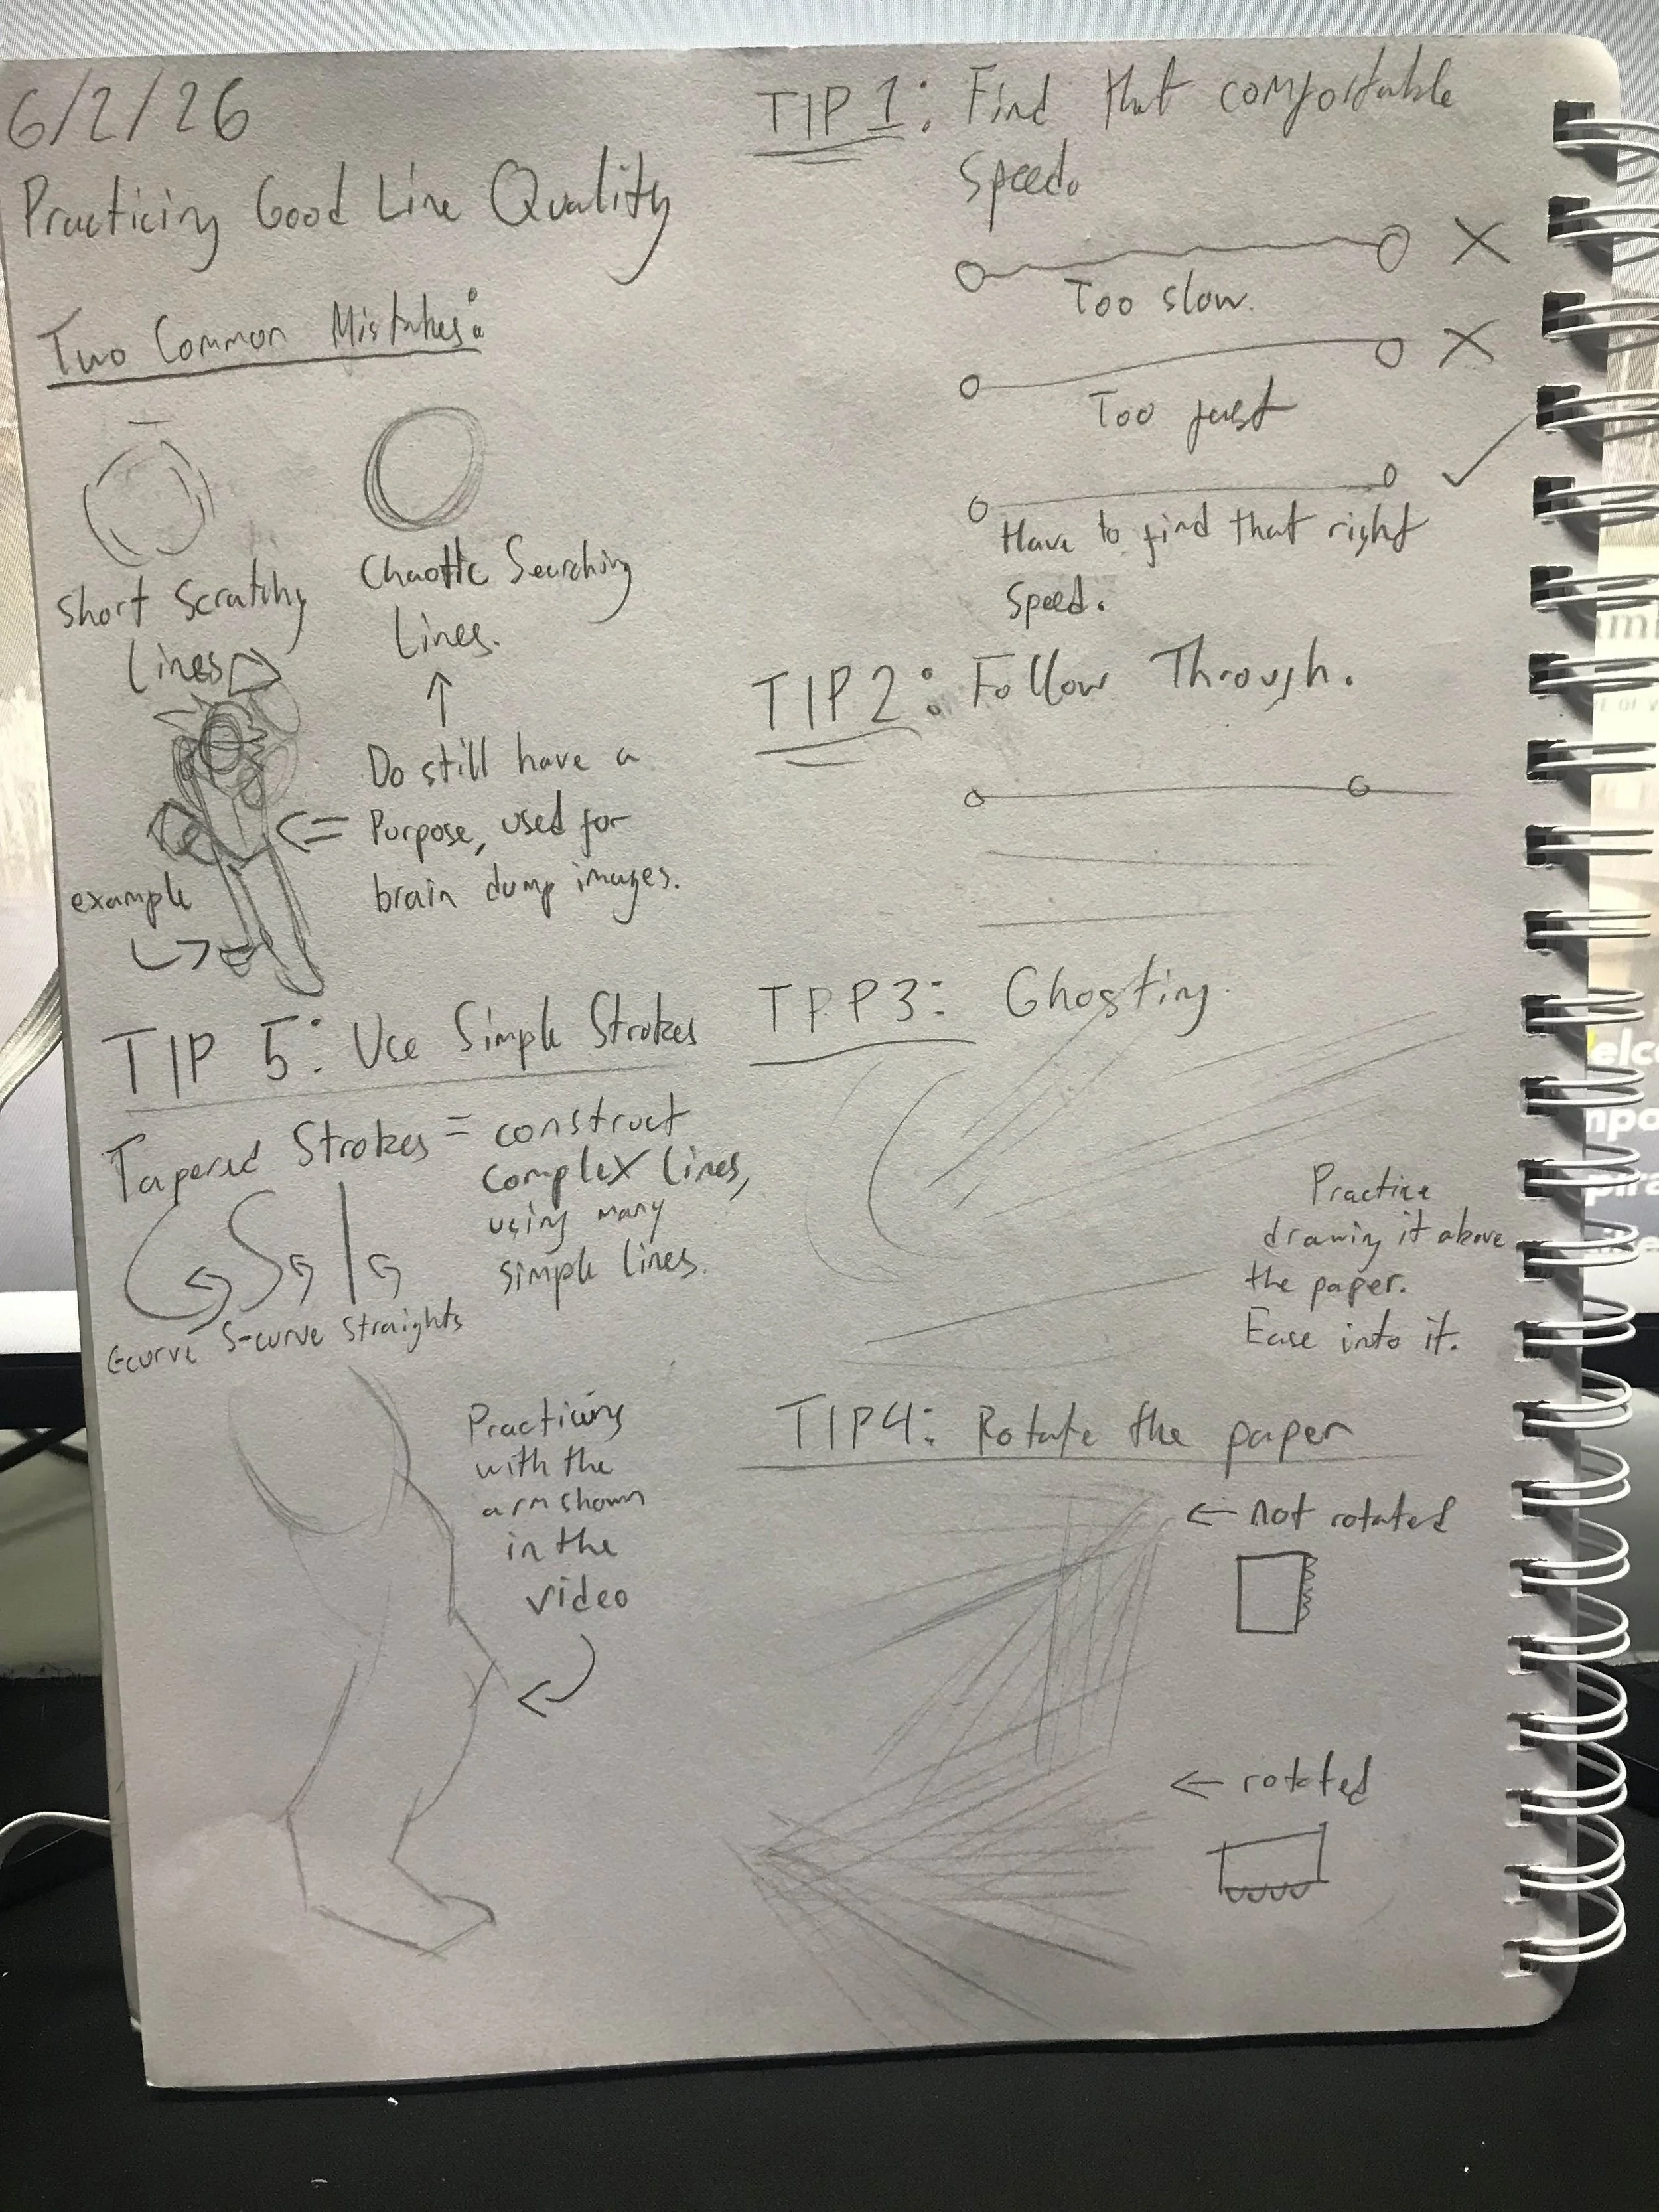 6/2/26
Practicing Good Line Quality
Two Common Mistakes:
Short Scratchy
Lines
Chaotic Searching
Lines.
Do still have a
Purpose, used for
brain dump images.
example
TIP 1: Find that comfortable
Speed.
Too slow.
Too fast
Have to find that right
speed.
TIP 2: Follow Through.
TIP 3: Ghosting.
Practice
drawing it above
the paper.
Ease into it.
TIP 4: Rotate the paper
← not rotated
← rotated
TIP 5: Use Simple Strokes
Tapered Strokes = construct
complex lines,
using many
simple lines.
C-curve S-curve Straights
Practicing
with the
arm shown
in the
video